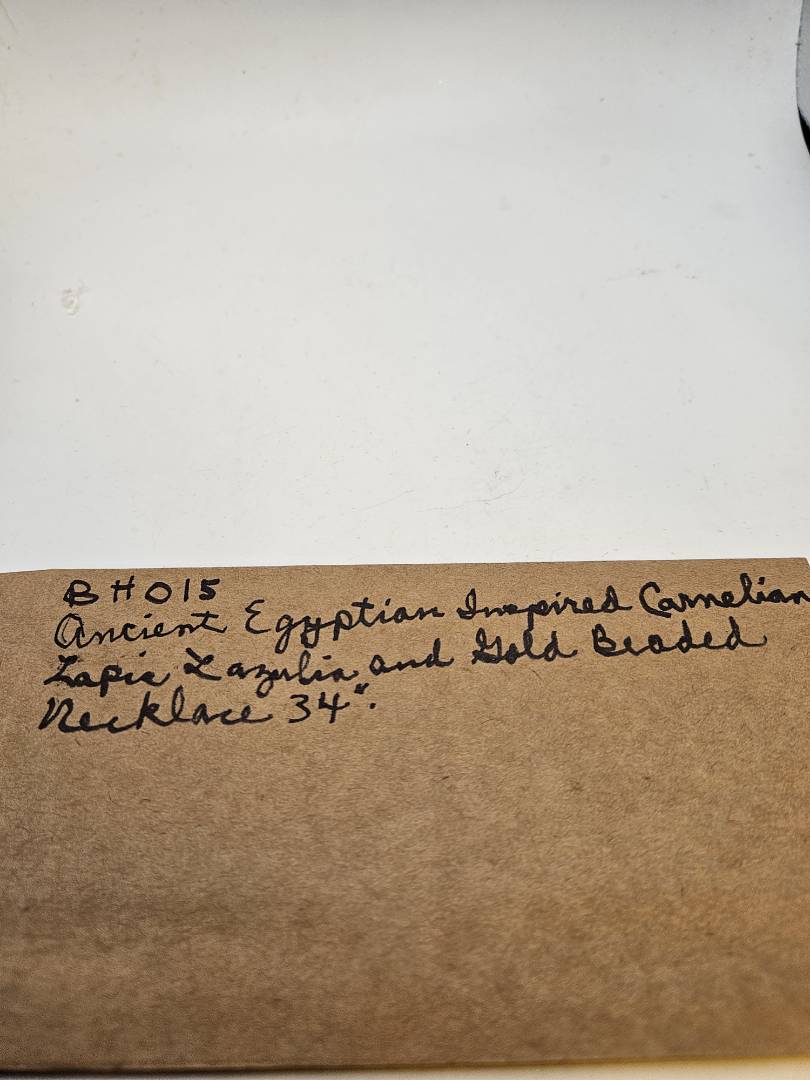 BH015
Ancient Egyptian Inspired Carnelian
Lapis Lazulia and Gold Beaded
Necklace 34".